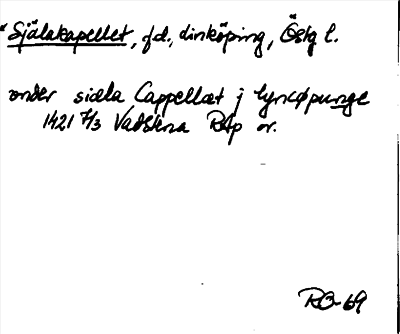 "Själakapellet, fd., Linköping, Östg l.
onder siæla Cappellæt j lyncøpunge
1421 7/3 Vadstena RAp or.
RO-69